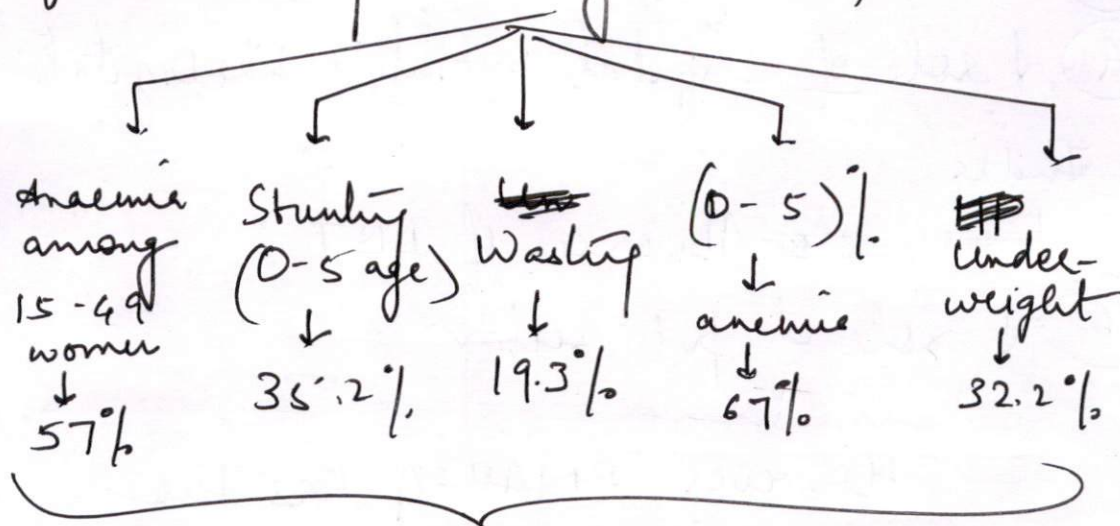 Anaemia
among
15-49
women
↓
57%
Stunting
(0-5 age)
↓
35.2%
Wasting
↓
19.3%
(0-5)%
↓
anemia
↓
67%
Under-
weight
↓
32.2%